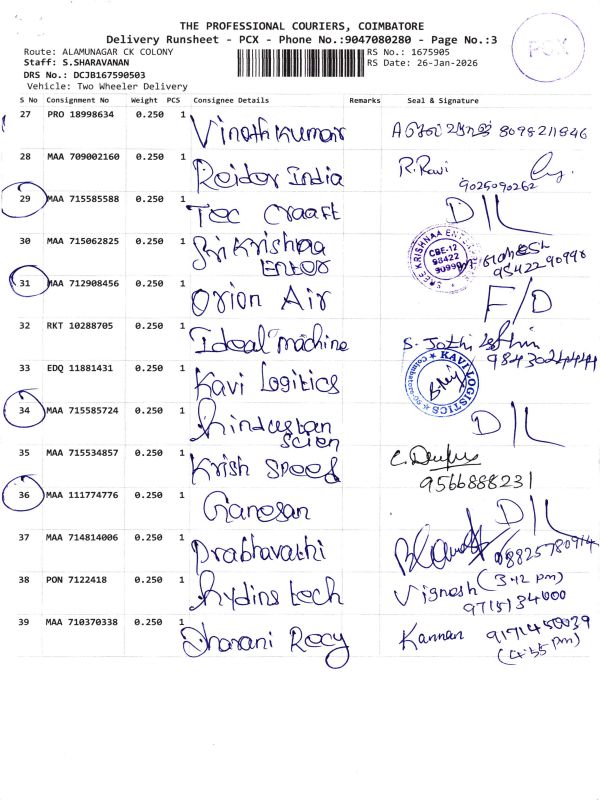 THE PROFESSIONAL COURIERS, COIMBATORE
Delivery Runsheet - PCX - Phone No.:9047080280 - Page No.:3
PCX
Route: ALAMUNAGAR CK COLONY
RS No.: 1675905
Staff: S.SHARAVANAN
RS Date: 26-Jan-2026
DRS No.: DCJB167590503
Vehicle: Two Wheeler Delivery
S No Consignment No Weight PCS Consignee Details Remarks Seal & Signature
27 PRO 18998634 0.250 1 Vinoth Kumar 8098211846
28 MAA 709002160 0.250 1 Roidor India R.Ravi
9025090262
29 MAA 715585588 0.250 1 Tec Craaft D/L
30 MAA 715062825 0.250 1 Sri Krishnaa
Enter
SREE KRISHNAA
CBE-12
98422
90998
9842290998
31 MAA 712908456 0.250 1 Orion Air F/D
32 RKT 10288705 0.250 1 Ideal machine S. Jothi
33 EDQ 11881431 0.250 1 Kavi Logitics
KAVI LOGISTICS
34 MAA 715585724 0.250 1 Hindustan
Scien
D/L
35 MAA 715534857 0.250 1 Krish Speed
9566888231
36 MAA 111774776 0.250 1 Ganesan D/L
37 MAA 714814006 0.250 1 Prabhavathi 08825780914
38 PON 7122418 0.250 1 Hydins tech Vignesh (3:12 pm)
39 MAA 710370338 0.250 1 Dharani Recy Kannan
(4:55 pm)